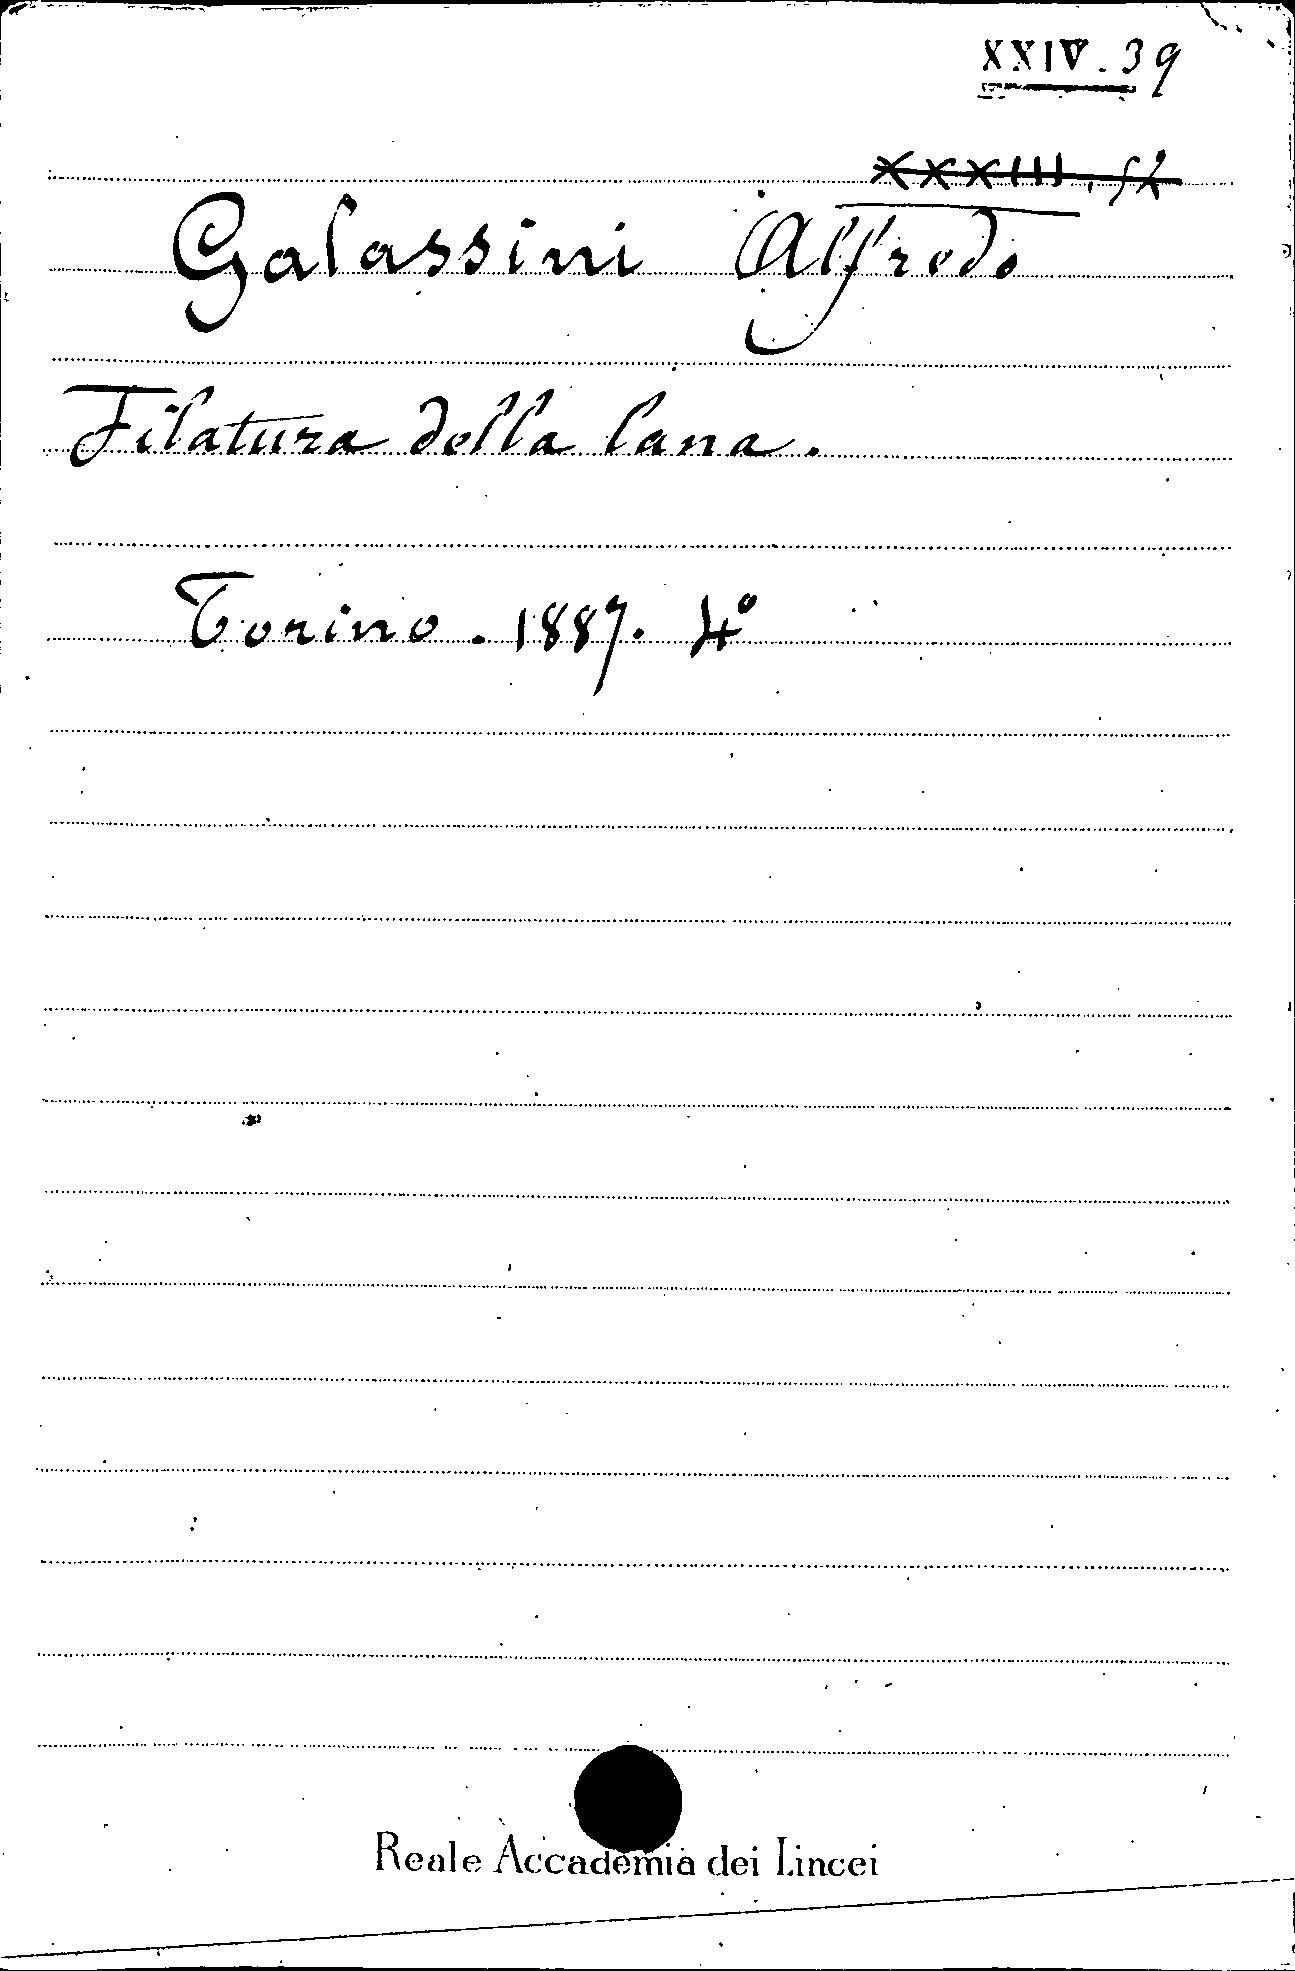 XXIV. 39
XXXIII. 52
Galassini Alfredo
Filatura della lana.
Torino. 1887. 4º
Reale Accademia dei Lincei